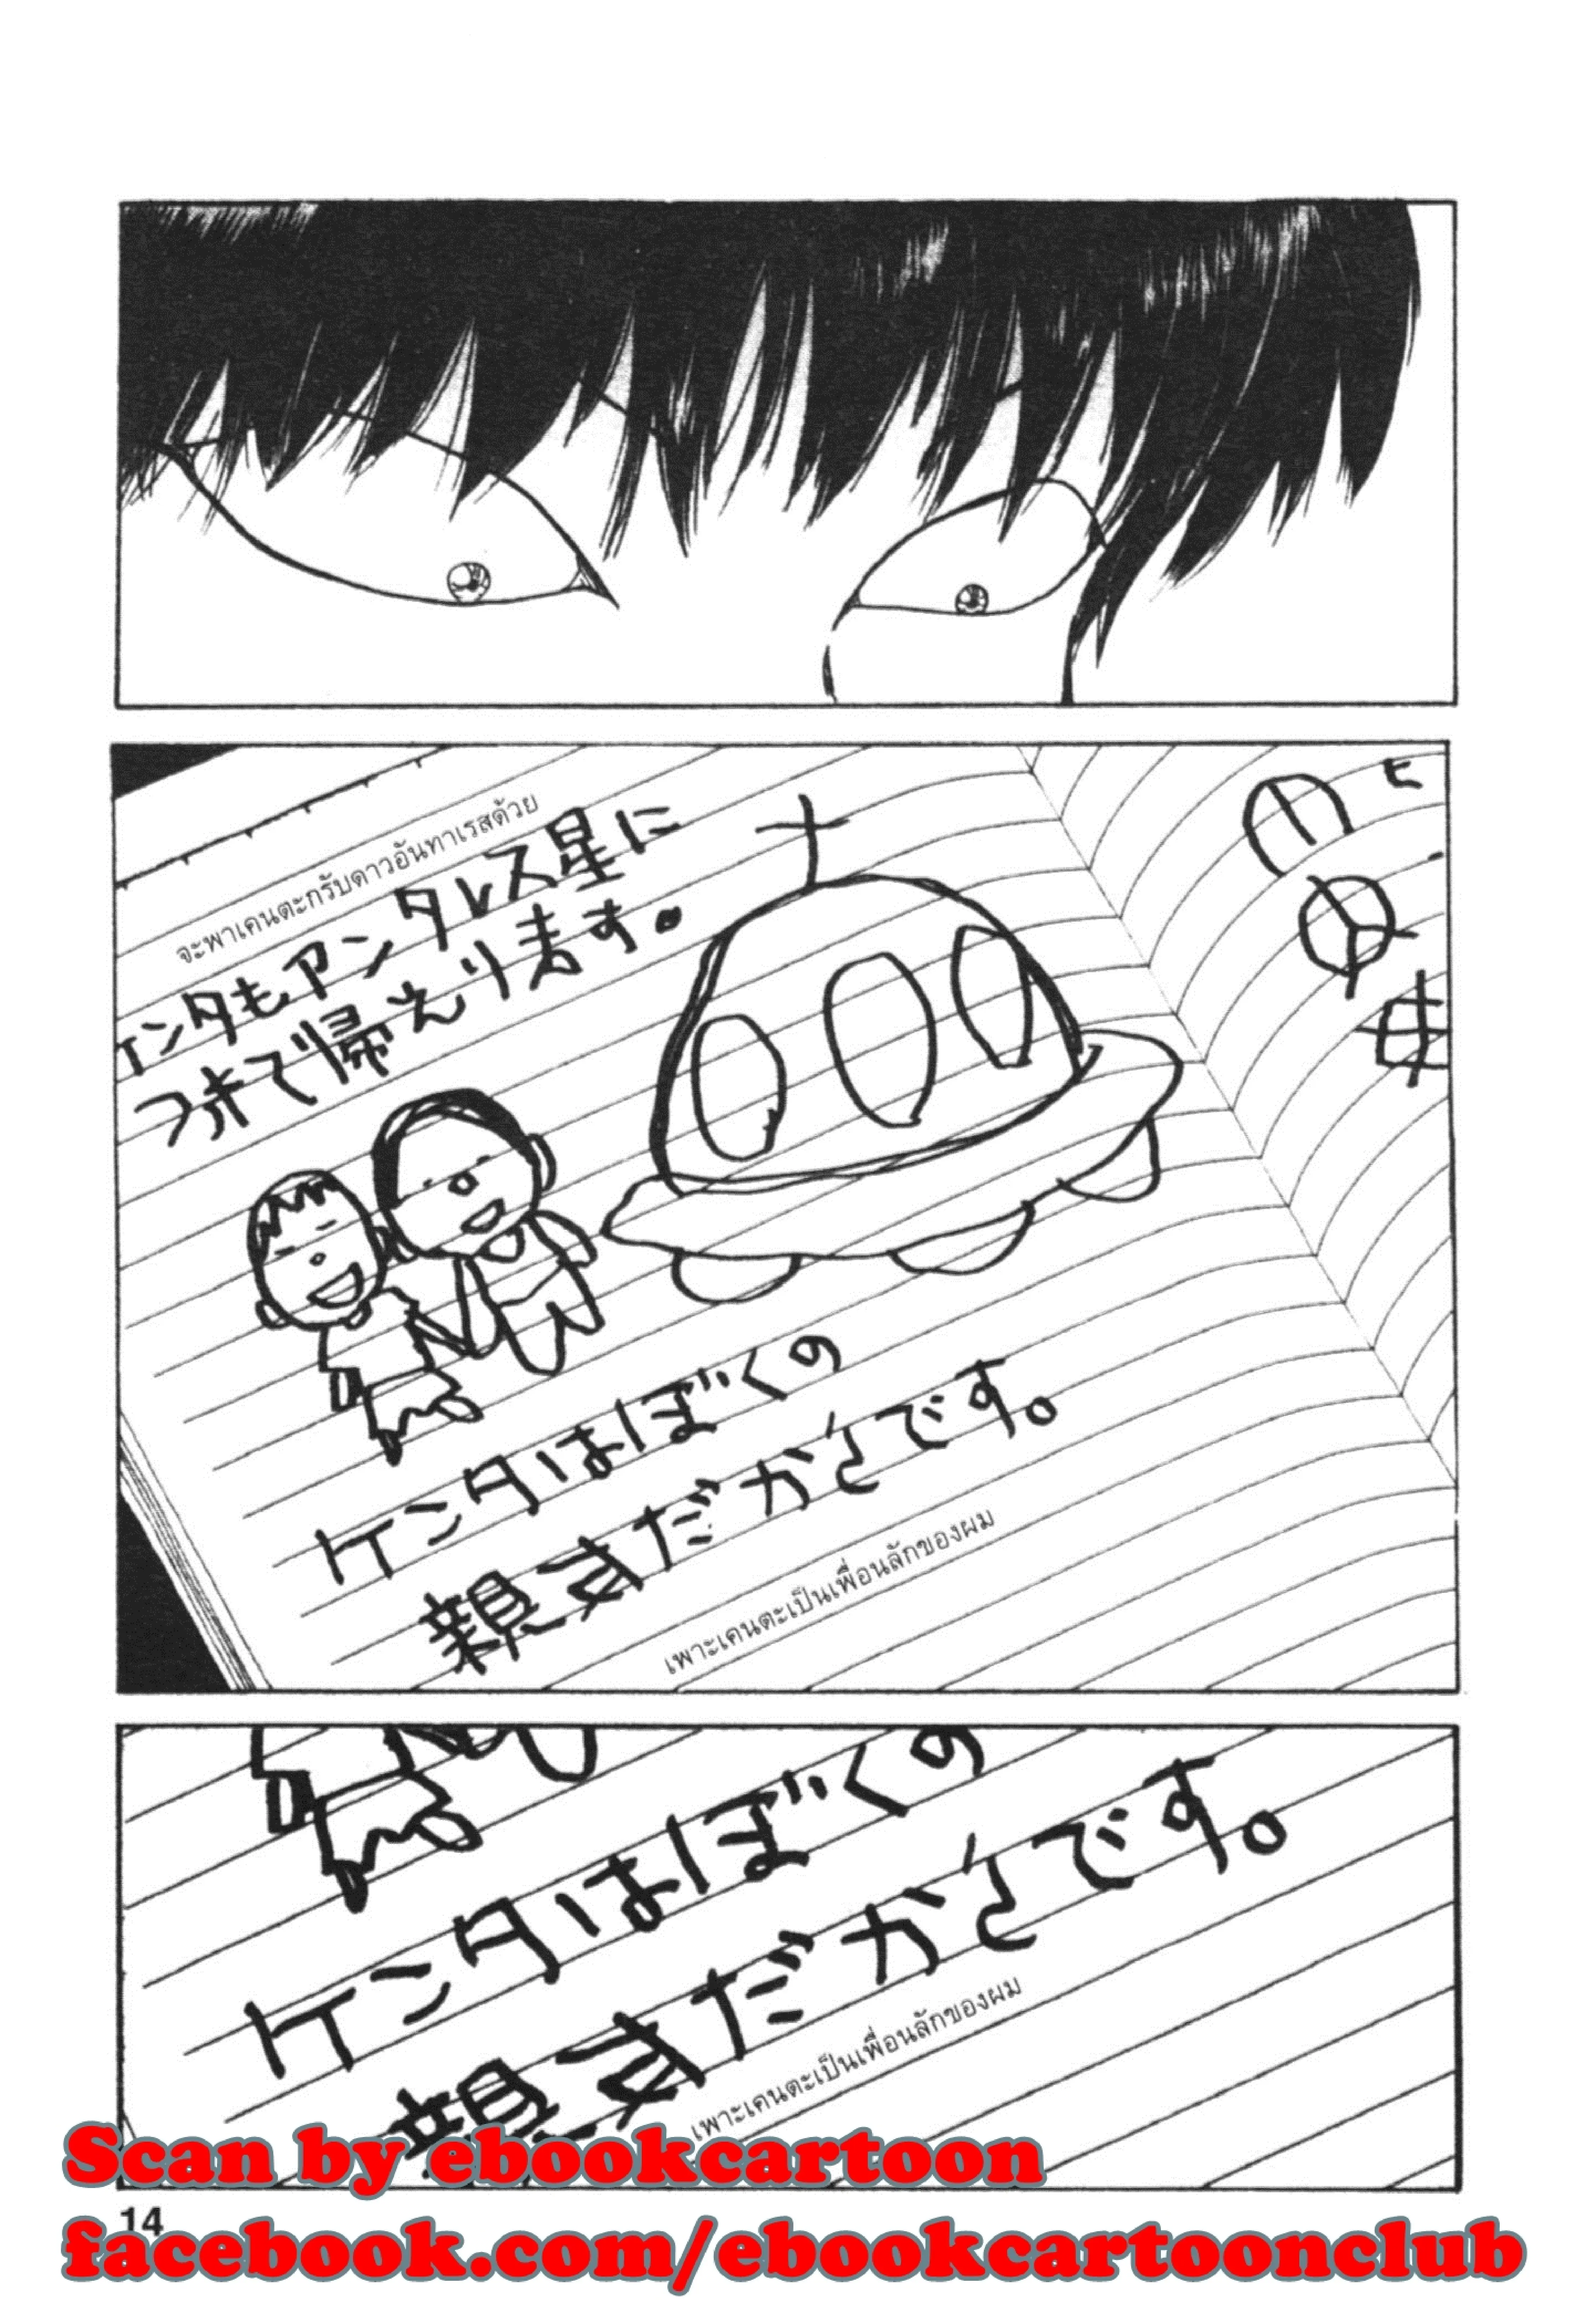 จะพาเคนตะกรับดาวอันทาเรสด้วย
ケンタもアンタレス星に
つれて帰えります。
ヒ
ケンタはぼくの
親友だからです。
เพาะเคนตะเป็นเพื่อนลักของผม
ケンタはぼくの
親友だからです。
เพาะเคนตะเป็นเพื่อนลักของผม
Scan by ebookcartoon
14
facebook.com/ebookcartoonclub